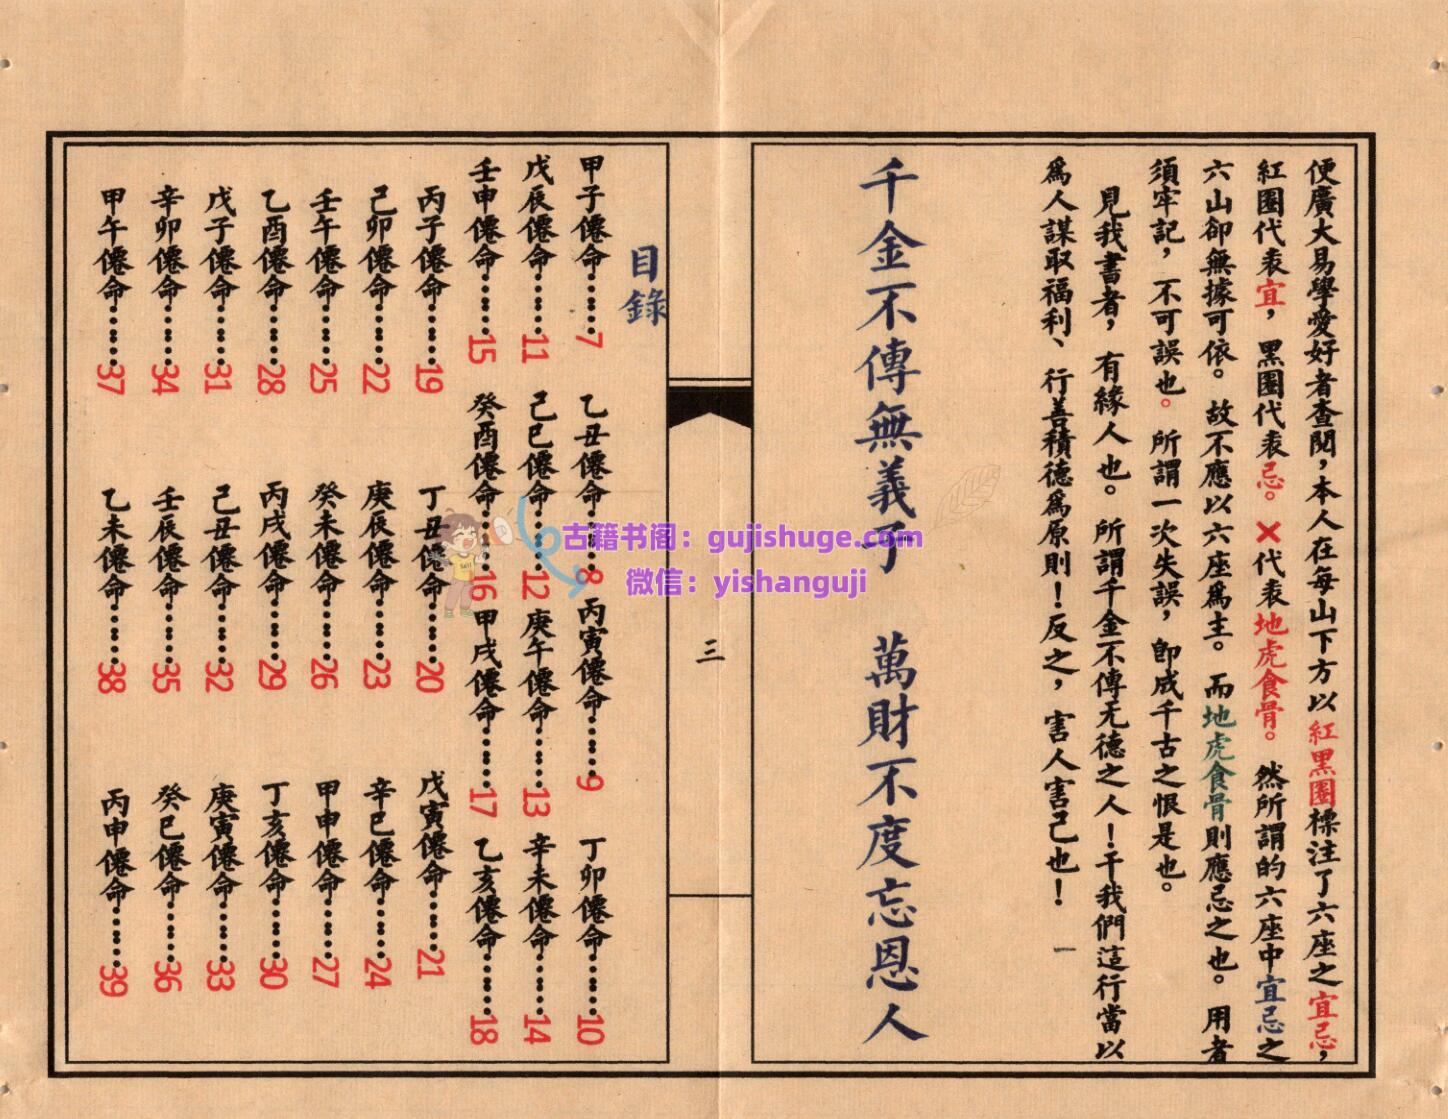 便廣大易學愛好者查閱，本人在每山下方以紅黑圈標注了六座之宜忌，
紅圈代表宜，黑圈代表忌。✕代表地虎食骨。然所謂的六座中宜忌之
六山卻無據可依。故不應以六座爲主。而地虎食骨則應忌之也。用者
須牢記，不可誤也。所謂一次失誤，即成千古之恨是也。
見我書者，有緣人也。所謂千金不傳无德之人！干我們這行當以
爲人謀取福利、行善積德爲原則！反之，害人害己也！一
千金不傳無義子 萬財不度忘恩人
三
目錄
甲子僊命……7 乙丑僊命……8 丙寅僊命……9 丁卯僊命……10
戊辰僊命……11 己巳僊命……12 庚午僊命……13 辛未僊命……14
壬申僊命……15 癸酉僊命……16 甲戌僊命……17 乙亥僊命……18
丙子僊命……19 丁丑僊命……20 戊寅僊命……21
己卯僊命……22 庚辰僊命……23 辛巳僊命……24
壬午僊命……25 癸未僊命……26 甲申僊命……27
乙酉僊命……28 丙戌僊命……29 丁亥僊命……30
戊子僊命……31 己丑僊命……32 庚寅僊命……33
辛卯僊命……34 壬辰僊命……35 癸巳僊命……36
甲午僊命……37 乙未僊命……38 丙申僊命……39
古籍书阁：gujishuge.com
微信：yishanguji